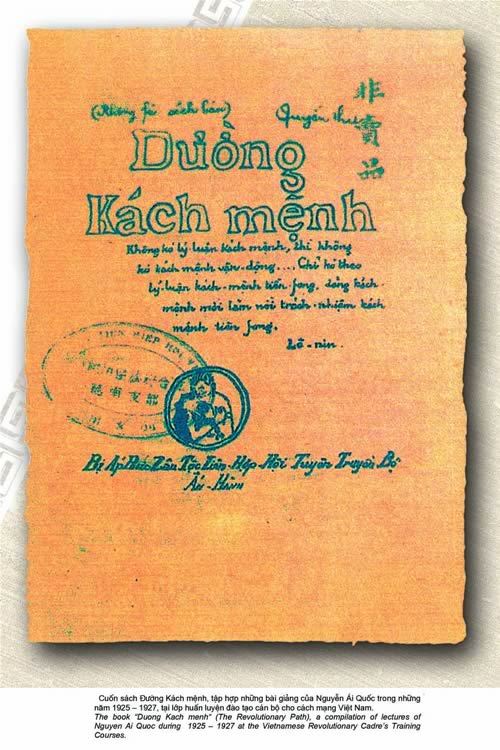 (Không fê sách bán)
Quyển thứ
非
賣
品
Đường
Kách mệnh
Không kó lý luận kách mệnh, thì không
kó kách mệnh vận-động.... Chỉ kó theo
lý luận kách-mệnh tiền fong, đảng kách-
mệnh mới làm nổi trách-nhiệm kách
mệnh tiền fong.
Lê-nin.
HIEP HOI
支部
Bị Áp Bức Dân Tộc Liên-Hiệp-Hội Tuyên Truyền Bộ
Ấn-Hành
Cuốn sách Đường Kách mệnh, tập hợp những bài giảng của Nguyễn Ái Quốc trong những
năm 1925 – 1927, tại lớp huấn luyện đào tạo cán bộ cho cách mạng Việt Nam.
The book "Duong Kach menh" (The Revolutionary Path), a compilation of lectures of
Nguyen Ai Quoc during 1925 – 1927 at the Vietnamese Revolutionary Cadre's Training
Courses.